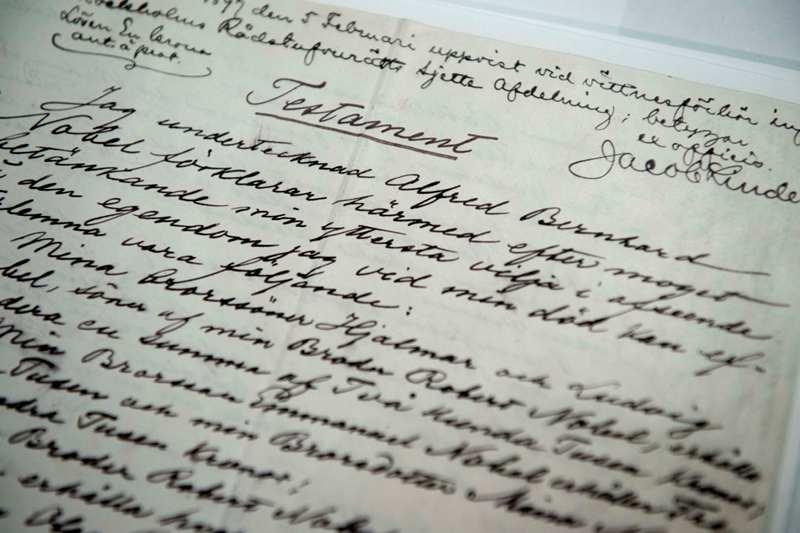 1897 den 5 Februari uppvist vid vittnesförhör inf
Stockholms Rådstufvurätts sjette Afdelning; betygar
Lösen En krona
ex officio.
Jacob Linde
Testament
Jag undertecknad Alfred Bernhard
Nobel förklarar härmed efter moget
betänkande min yttersta vilja i afseende
å den egendom jag vid min död kan ef-
terlemna vara följande:
Mina Brorssöner Hjalmar och Ludvig
bel, söner af min Broder Robert Nobel, erhålla
dera en summa af Två Hundra Tusen Kronor;
Min Brorsson Emmanuel Nobel erhåller Tre
Tusen och min Brorsdotter Mina
ndra Tusen Kronor;
Broder Robert Nobel
erhålla